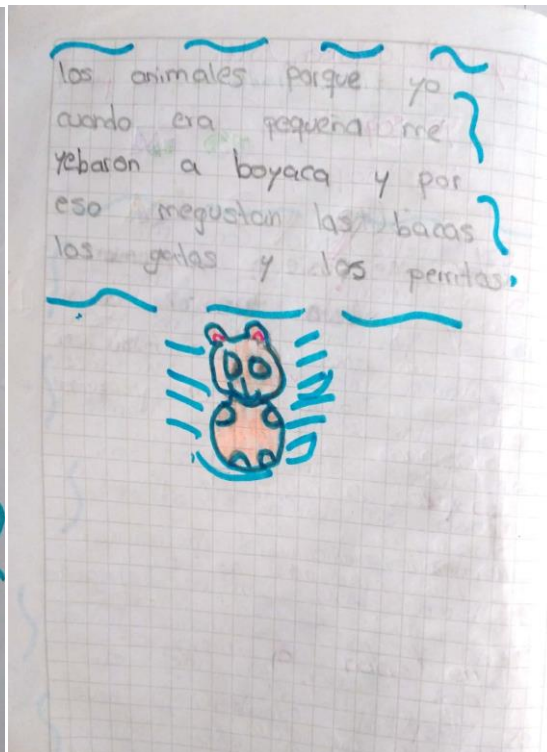 los animales porque yo
cuando era pequeña me
yebaron a boyaca y por
eso megustan las bacas
los gatas y los perritas